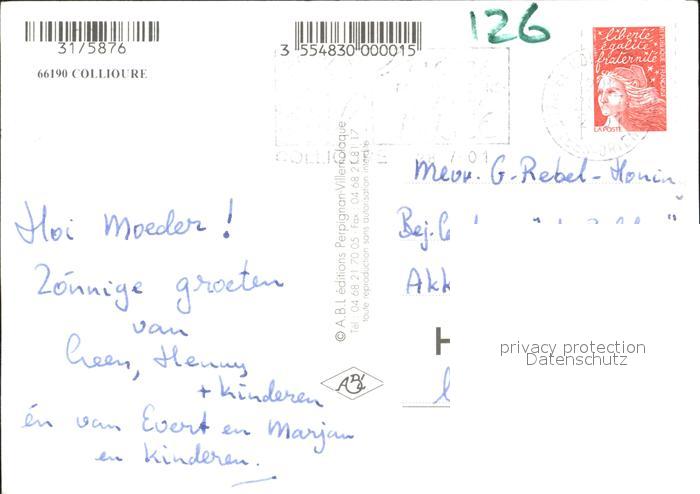 126
31/5876
3 554830 000015
66190 COLLIOURE
liberté
égalité
fraternité
RÉPUBLIQUE FRANÇAISE
LA POSTE
Hoi Moeder!
Zónnige groeten
van
Leen, Henny
+ kinderen
én van Evert en Marjan
en kinderen.
© A.B.L éditions Perpignan-Villemolaque
Tel. 04 68 21 70 05 Fax 04 68 21 81 17
toute reproduction sans autorisation interdite
ABL
Mevr. G-Rebel-Honin
Bej.
Akk
H
privacy protection
Datenschutz